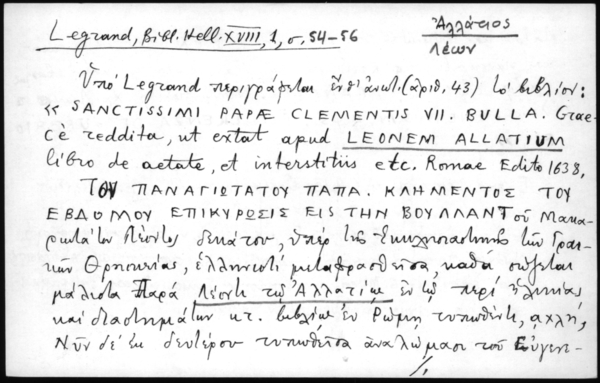 Legrand, Bibl. Hell. XVIII, 1, σ. 54-56
Ἀλλάτιος
Λέων
Ὑπὸ Legrand περιγράφεται ἐνθ' ἀνωτ. (ἀριθ. 43) τὸ βιβλίον:
« SANCTISSIMI PAPÆ CLEMENTIS VII. BULLA. Grae-
cè reddita, ut extat apud LEONEM ALLATIUM
libro de aetate, et interstitiis etc. Romae Edito 1638,
ΤΟΥ ΠΑΝΑΓΙΩΤΑΤΟΥ ΠΑΠΑ. ΚΛΗΜΕΝΤΟΣ ΤΟΥ
ΕΒΔΟΜΟΥ ΕΠΙΚΥΡΩΣΙΣ ΕΙΣ ΤΗΝ ΒΟΥΛΛΑΝ τοῦ Μακα-
ριωτάτου Λέοντος δεκάτου, ὑπὲρ τῆς Ἐκκλησιαστικῆς τῶν Γραι-
κῶν Θρησκείας, ἑλληνιστὶ μεταφρασθεῖσα, καθὰ σώζεται
μάλιστα Παρὰ Λέοντι τῷ Ἀλλατίῳ ἐν τῷ περὶ ἡλικίας
καὶ διαστημάτων κτ. βιβλίῳ ἐν Ῥώμῃ τυπωθέντι, αχλή,
Νῦν δὲ ἐκ δευτέρου τυπωθεῖσα ἀναλώμασι τοῦ Εὐγενε-
./.